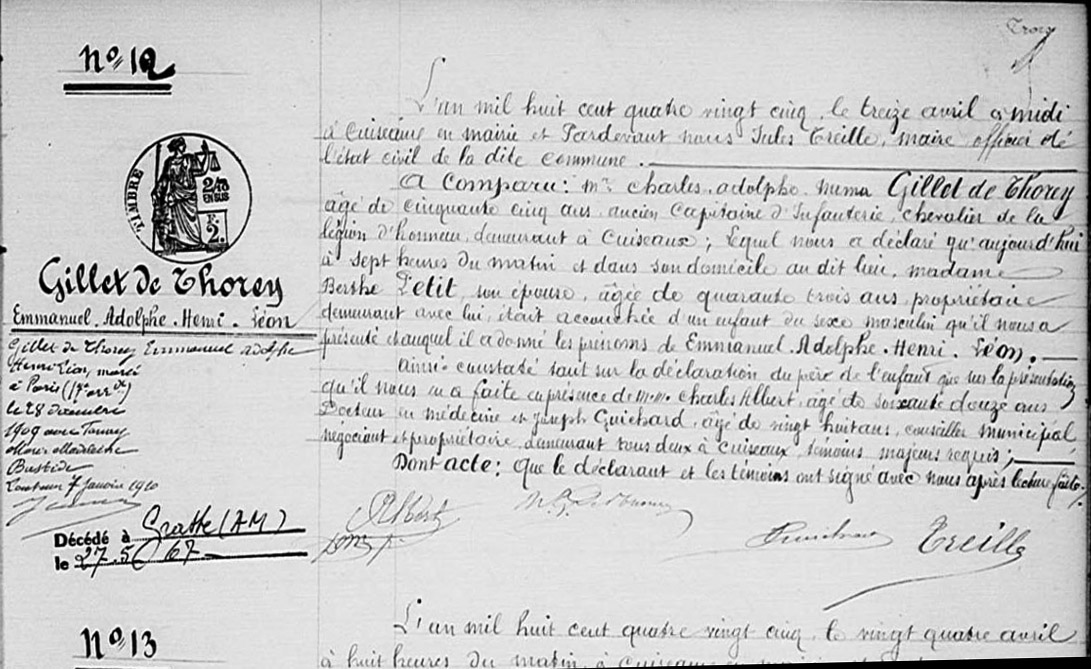 No 12
TIMBRE
2/10 EN SUS
F.
2.
Gillet de Thorey
Emmanuel. Adolphe. Henri. Léon
Gillet de Thorey Emmanuel Adolphe
Henri Léon, marié
à Paris (17e arrt)
le 28 Janvier
1909 avec
Marie Madeleine
Bastide
7 Janvier 1910
Décédé à Grasse (AM)
le 27.5 67
L'an mil huit cent quatre vingt cinq, le treize avril à midi
à Cuiseaux en mairie et Pardevant nous Jules Treille, maire officier de
l'état civil de la dite commune.
A comparu: Mr. Charles. Adolphe. Numa Gillet de Thorey
âgé de cinquante cinq ans, ancien Capitaine d'Infanterie, chevalier de la
légion d'honneur, demeurant à Cuiseaux; Lequel nous a déclaré qu'aujourd'hui
à sept heures du matin et dans son domicile au dit lieu, madame
Berthe Petit, son épouse, âgée de quarante trois ans, propriétaire
demeurant avec lui, était accouchée d'un enfant du sexe masculin qu'il nous a
présenté & auquel il a donné les prénoms de Emmanuel. Adolphe. Henri. Léon.
Ainsi constaté tant sur la déclaration du père de l'enfant que sur la présentation
qu'il nous en a faite en présence de M.M. Charles Albert, âgé de soixante douze ans
Docteur en médecine et Joseph Guichard, âgé de vingt huit ans, conseiller municipal,
négociant et propriétaire, demeurant tous deux à Cuiseaux, témoins majeurs requis;
Dont acte: que le déclarant et les témoins ont signé avec nous après lecture faite.
Albert
Guichard
Treille
No 13
L'an mil huit cent quatre vingt cinq, le vingt quatre avril
à huit heures du matin, à Cuiseaux en mairie